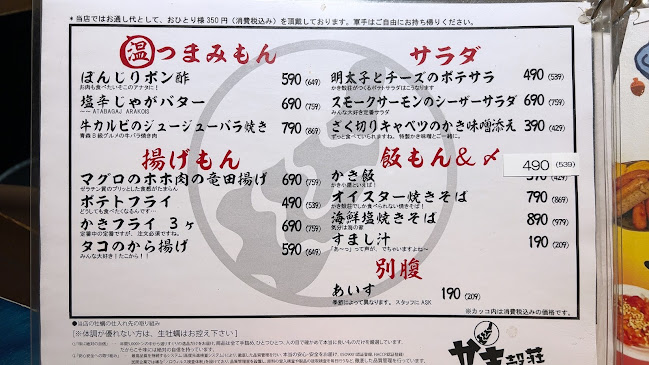 ＊当店ではお通し代として、おひとり様350円（消費税込み）を頂戴しております。軍手はご自由にお持ち帰りください。
温つまみもん
ぼんじりポン酢 590(649)
お肉も食べたいそこのアナタに！
塩辛じゃがバター 690(759)
〜〜 ATABAGAJ ARAKOIS
牛カルビのジュージューバラ焼き 790(869)
青森B級グルメの牛バラ焼き肉
揚げもん
マグロのホホ肉の竜田揚げ 690(759)
ゼラチン質のプリッとした食感がたまらん
ポテトフライ 490(539)
どうしても食べたくなるんです…
かきフライ 3ヶ 690(759)
定番中の定番ですが、注文必須ですね。
タコのから揚げ 590(649)
みんな大好き！たこから！！
サラダ
明太子とチーズのポテサラ 490(539)
かき殻荘がつくるポテトサラダはこうなります
スモークサーモンのシーザーサラダ 690(759)
みんな大好き定番サラダ
ざく切りキャベツのかき味噌添え 390(429)
ずっと食べていられますね。特製かき味噌とご一緒に。
飯もん&〆
かき飯 490(539)
かき小屋といえば！
オイスター焼きそば 790(869)
かき殻荘でしか食べられない焼きそば！
海鮮塩焼きそば 890(979)
気分は海の家
すまし汁 190(209)
「あ〜っ」って声が、でちゃいますよね〜
別腹
あいす 190(209)
季節によって異なります。スタッフに ASK
※カッコ内は消費税込みの価格です。
●当店の牡蠣の仕入れ先の取り組み
[※体調が優れない方は、生牡蠣はお控え下さい]
かき殻荘